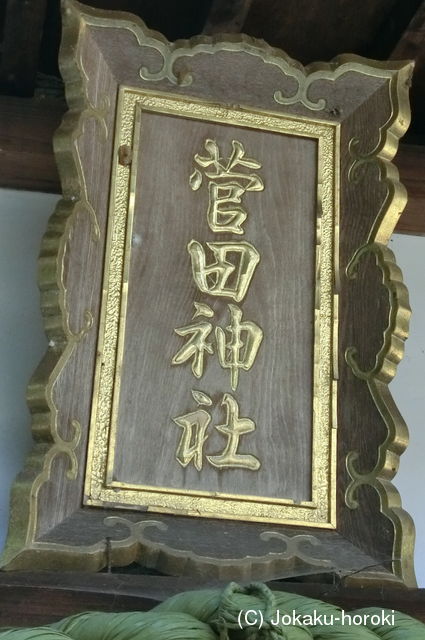 菅田神社
(C) Jokaku-horoki